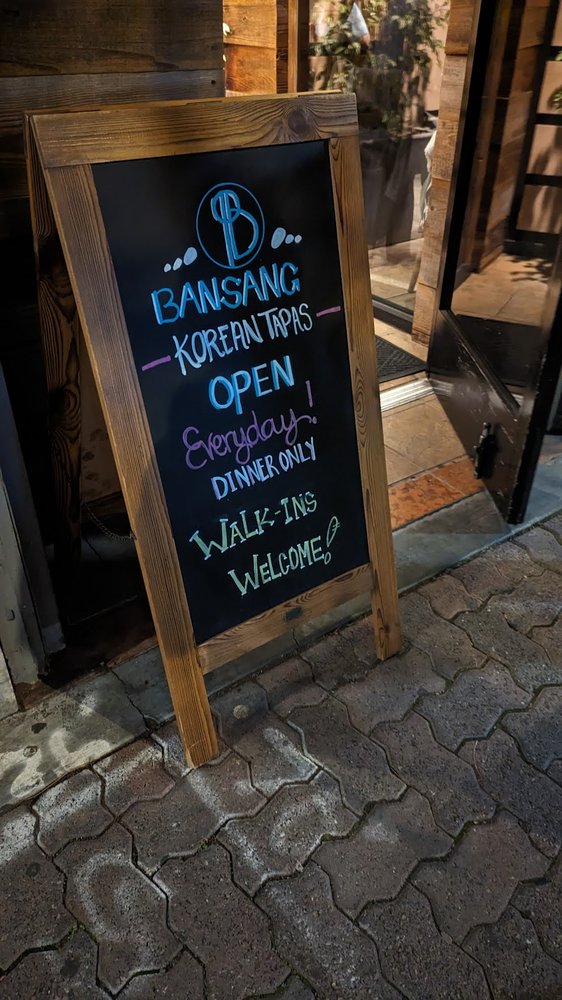 B
BANSANG
KOREAN TAPAS
OPEN
Everyday!
DINNER ONLY
WALK-INS
WELCOME!